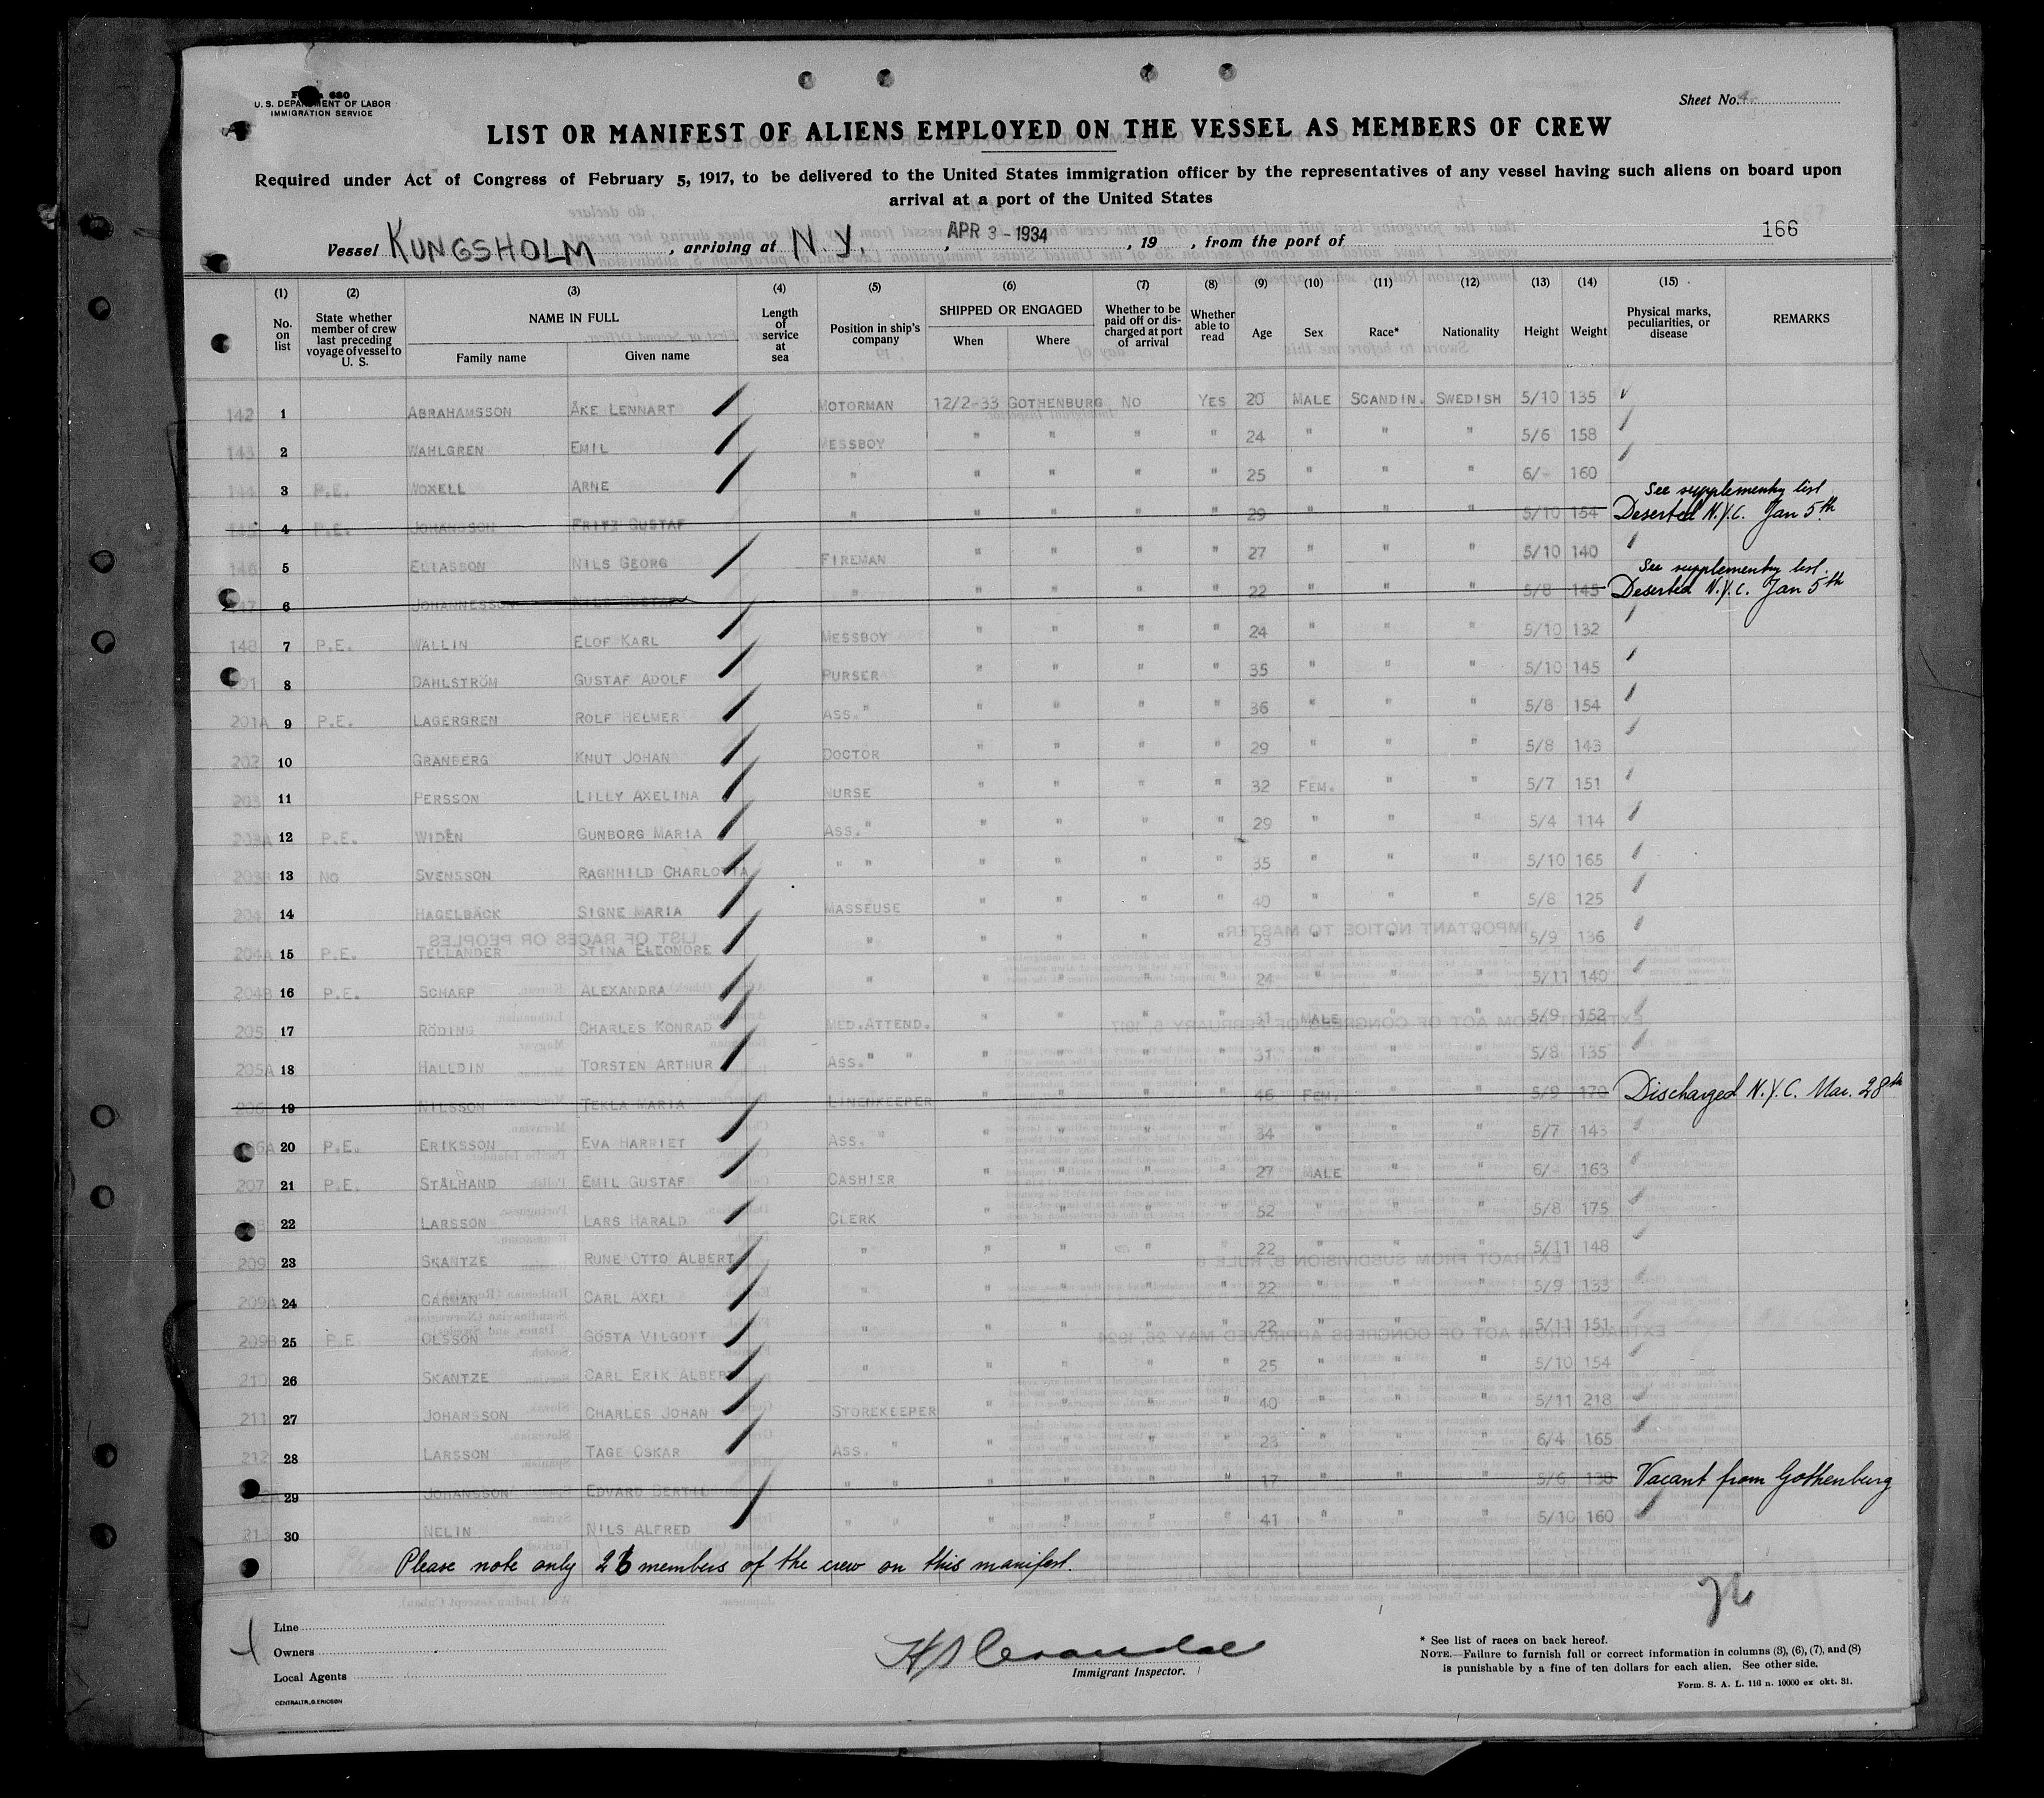 Form 680
U. S. DEPARTMENT OF LABOR
IMMIGRATION SERVICE
Sheet No. 4
LIST OR MANIFEST OF ALIENS EMPLOYED ON THE VESSEL AS MEMBERS OF CREW
Required under Act of Congress of February 5, 1917, to be delivered to the United States immigration officer by the representatives of any vessel having such aliens on board upon
arrival at a port of the United States
Vessel KUNGSHOLM, arriving at N.Y., APR 3 - 1934, 19 , from the port of 166
(1) (2) (3) (4) (5) (6) (7) (8) (9) (10) (11) (12) (13) (14) (15)
No. on list | State whether member of crew last preceding voyage of vessel to U. S. | NAME IN FULL Family name Given name | Length of service at sea | Position in ship's company | SHIPPED OR ENGAGED When Where | Whether to be paid off or discharged at port of arrival | Whether able to read | Age | Sex | Race* | Nationality | Height | Weight | Physical marks, peculiarities, or disease | REMARKS
142 1 ABRAHAMSSON ÅKE LENNART MOTORMAN 12/2-33 GOTHENBURG NO YES 20 MALE SCANDIN. SWEDISH 5/10 135
143 2 WAHLGREN EMIL MESSBOY " " " " 24 " " " 5/6 158
144 3 P.E. WOXELL ARNE " " " " " 25 " " " 6/- 160
See supplementry list
145 4 P.E. JOHANSSON FRITZ GUSTAF " " " " " 29 " " " 5/10 154 Deserted N.Y.C. Jan 5th
146 5 ELIASSON NILS GEORG FIREMAN " " " " 27 " " " 5/10 140
See supplementry list.
147 6 JOHANNESSON NILS GUSTAF " " " " " 22 " " " 5/8 145 Deserted N.Y.C. Jan 5th
148 7 P.E. WALLIN ELOF KARL MESSBOY " " " " 24 " " " 5/10 132
201 8 DAHLSTRÖM GUSTAF ADOLF PURSER " " " " 35 " " " 5/10 145
201A 9 P.E. LAGERGREN ROLF HELMER ASS. " " " " " 36 " " " 5/8 154
202 10 GRANBERG KNUT JOHAN DOCTOR " " " " 29 " " " 5/8 143
203 11 PERSSON LILLY AXELINA NURSE " " " " 32 FEM. " " 5/7 151
203A 12 P.E. WIDÉN GUNBORG MARIA ASS. " " " " " 29 " " " 5/4 114
203B 13 NO SVENSSON RAGNHILD CHARLOTTA " " " " " " 35 " " " 5/10 165
204 14 HAGELBÄCK SIGNE MARIA MASSEUSE " " " " 40 " " " 5/8 125
204A 15 P.E. TELLANDER STINA ELEONORE " " " " " 23 " " " 5/9 136
204B 16 P.E. SCHARP ALEXANDRA " " " " " 24 " " " 5/11 140
205 17 RÖDING CHARLES KONRAD MED.ATTEND. " " " " 31 MALE " " 5/9 152
205A 18 HALLDIN TORSTEN ARTHUR ASS. " " " " " " 31 " " " 5/8 135
206 19 NILSSON TEKLA MARIA LINENKEEPER " " " " 46 FEM. " " 5/9 170 Discharged N.Y.C. Mar. 28th
206A 20 P.E. ERIKSSON EVA HARRIET ASS. " " " " " 34 " " " 5/7 143
207 21 P.E. STÅLHAND EMIL GUSTAF CASHIER " " " " 27 MALE " " 6/- 163
208 22 LARSSON LARS HARALD CLERK " " " " 52 " " " 5/8 175
209 23 SKANTZE RUNE OTTO ALBERT " " " " " 22 " " " 5/11 148
209A 24 CARMAN CARL AXEL " " " " " 22 " " " 5/9 133
209B 25 P.E OLSSON GÖSTA VILGOTT " " " " " 22 " " " 5/11 151
210 26 SKANTZE CARL ERIK ALBERT " " " " " 25 " " " 5/10 154
211 27 JOHANSSON CHARLES JOHAN STOREKEEPER " " " " 40 " " " 5/11 218
212 28 LARSSON TAGE OSKAR ASS. " " " " " 23 " " " 6/4 165
212A 29 JOHANSSON EDVARD BERTIL " " " " " " 17 " " " 5/6 138 Vacant from Gothenburg
213 30 NELIN NILS ALFRED " " " " " " 41 " " " 5/10 160
Please note only 26 members of the crew on this manifest.
26
Line
Owners
Local Agents
CENTRALTR., G. ERICSON
Immigrant Inspector.
* See list of races on back hereof.
NOTE.—Failure to furnish full or correct information in columns (3), (6), (7), and (8)
is punishable by a fine of ten dollars for each alien. See other side.
Form. S. A. L. 116 n. 10000 ex okt. 31.